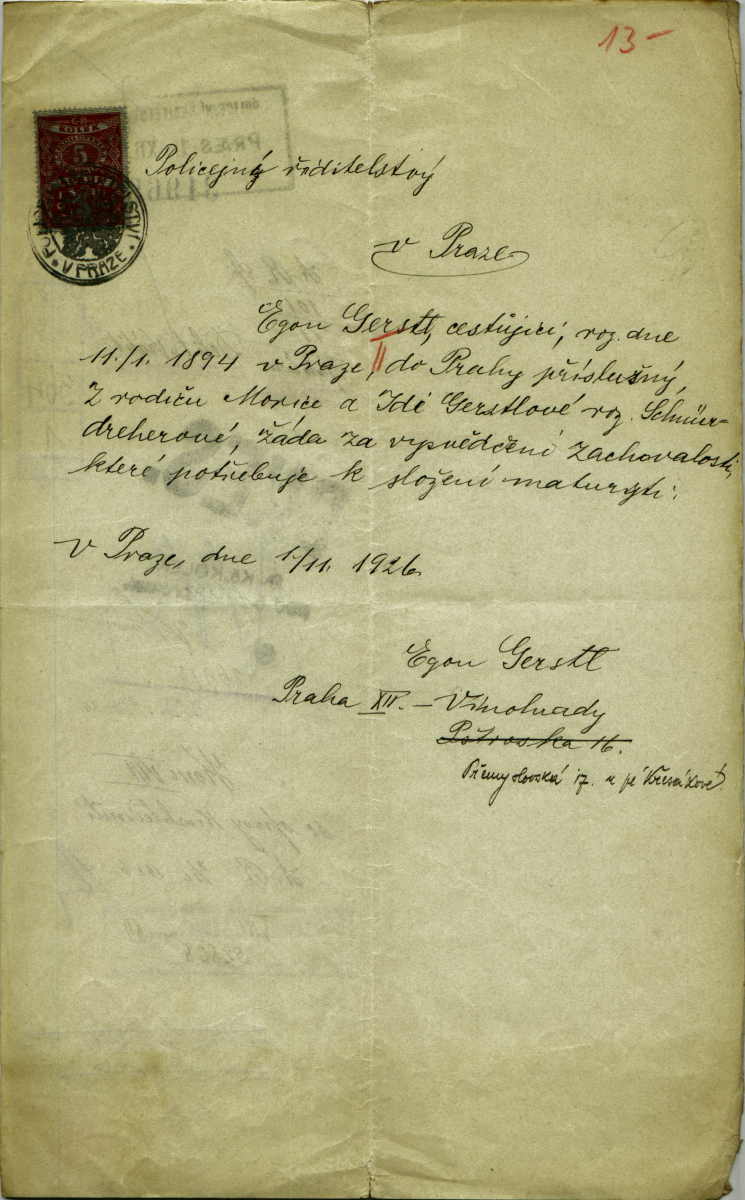 13-
KOLEK
5
V PRAZE
Policejný ředitelstvý
v Praze
Egon Gerstl, cestůjici, roz. dne
11./1. 1894 v Praze, do Prahy příslušný,
z rodičů Morice a Idé Gerstlové roz. Schnür-
dreherové, žáda za vysvědčení zachovalosti,
které potřebuje k složení maturyti.
V Praze, dne 1./11. 1926.
Egon Gerstl
Praha XII. – Vinohrady
Přemyslovská 17. u pí